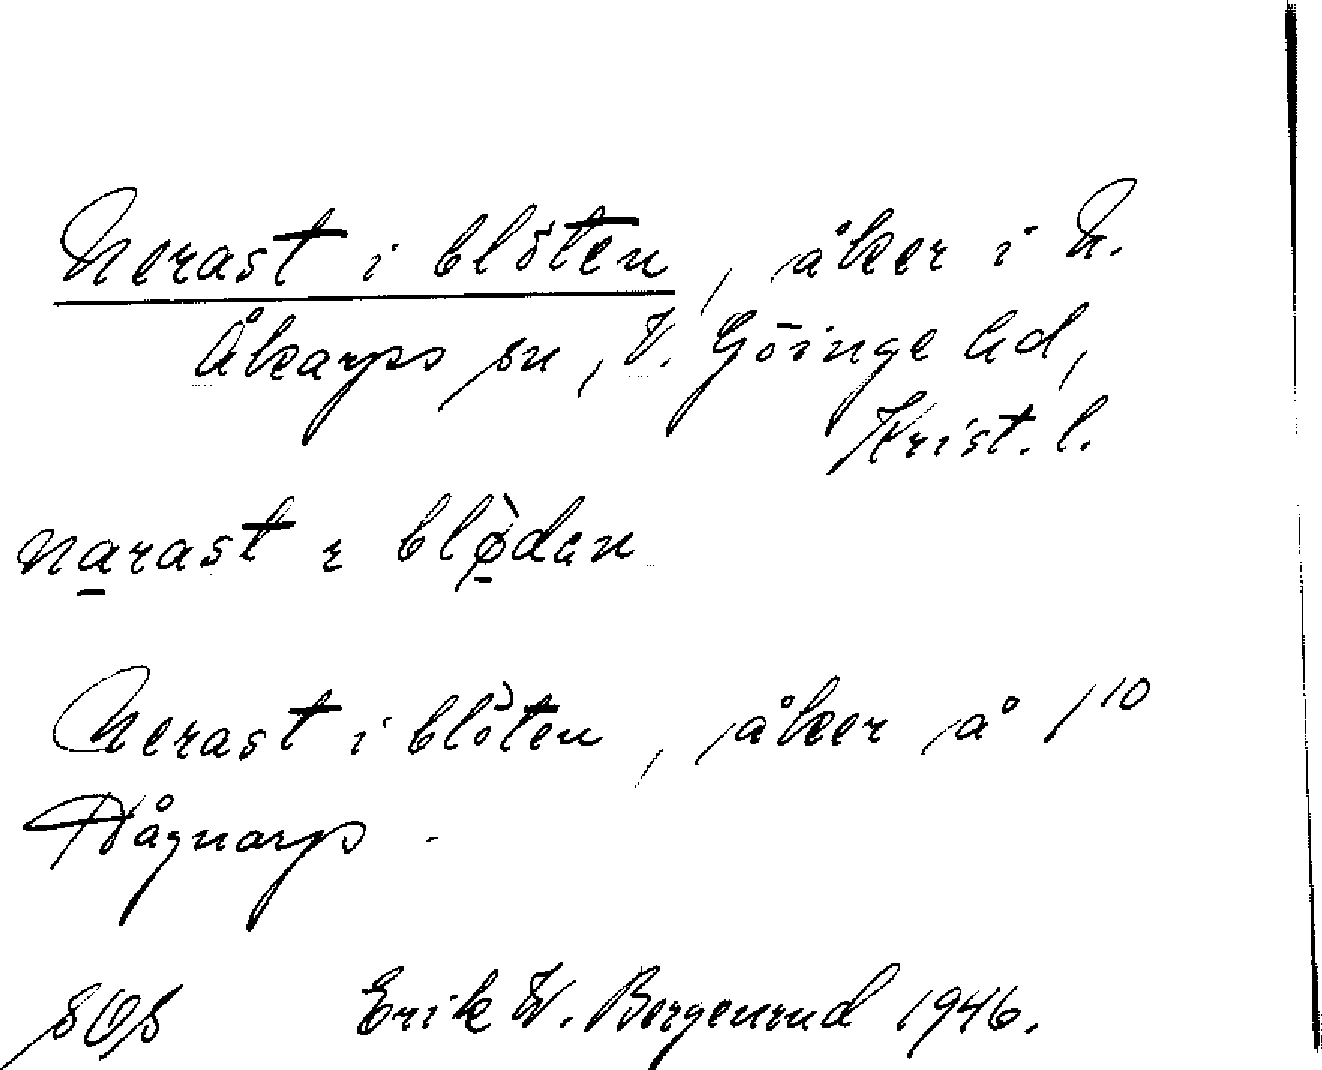 Nerast i blöten, åker i N.
Åkarps sn, V. Göinge hd,
Krist. l.
narast ɪ blø̀dan
Nerast i blöten, åker å 1¹⁰
Hågnarp.
SOS Erik W. Bergenrud 1946.